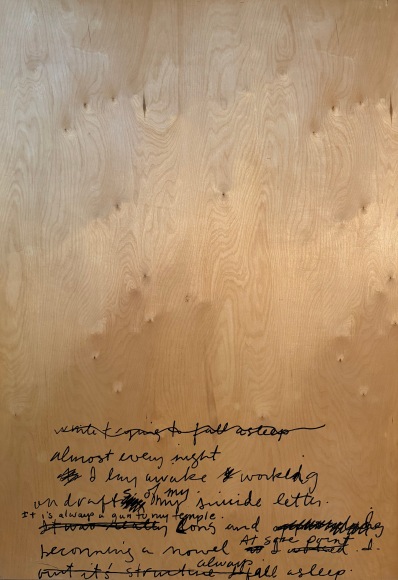 while trying to fall asleep
almost every night
I lay awake working
on drafts of my suicide letter.
It is always a gun to my temple.
It was really long and
At some point
becoming a novel I.
always
but it's structure I fall asleep.